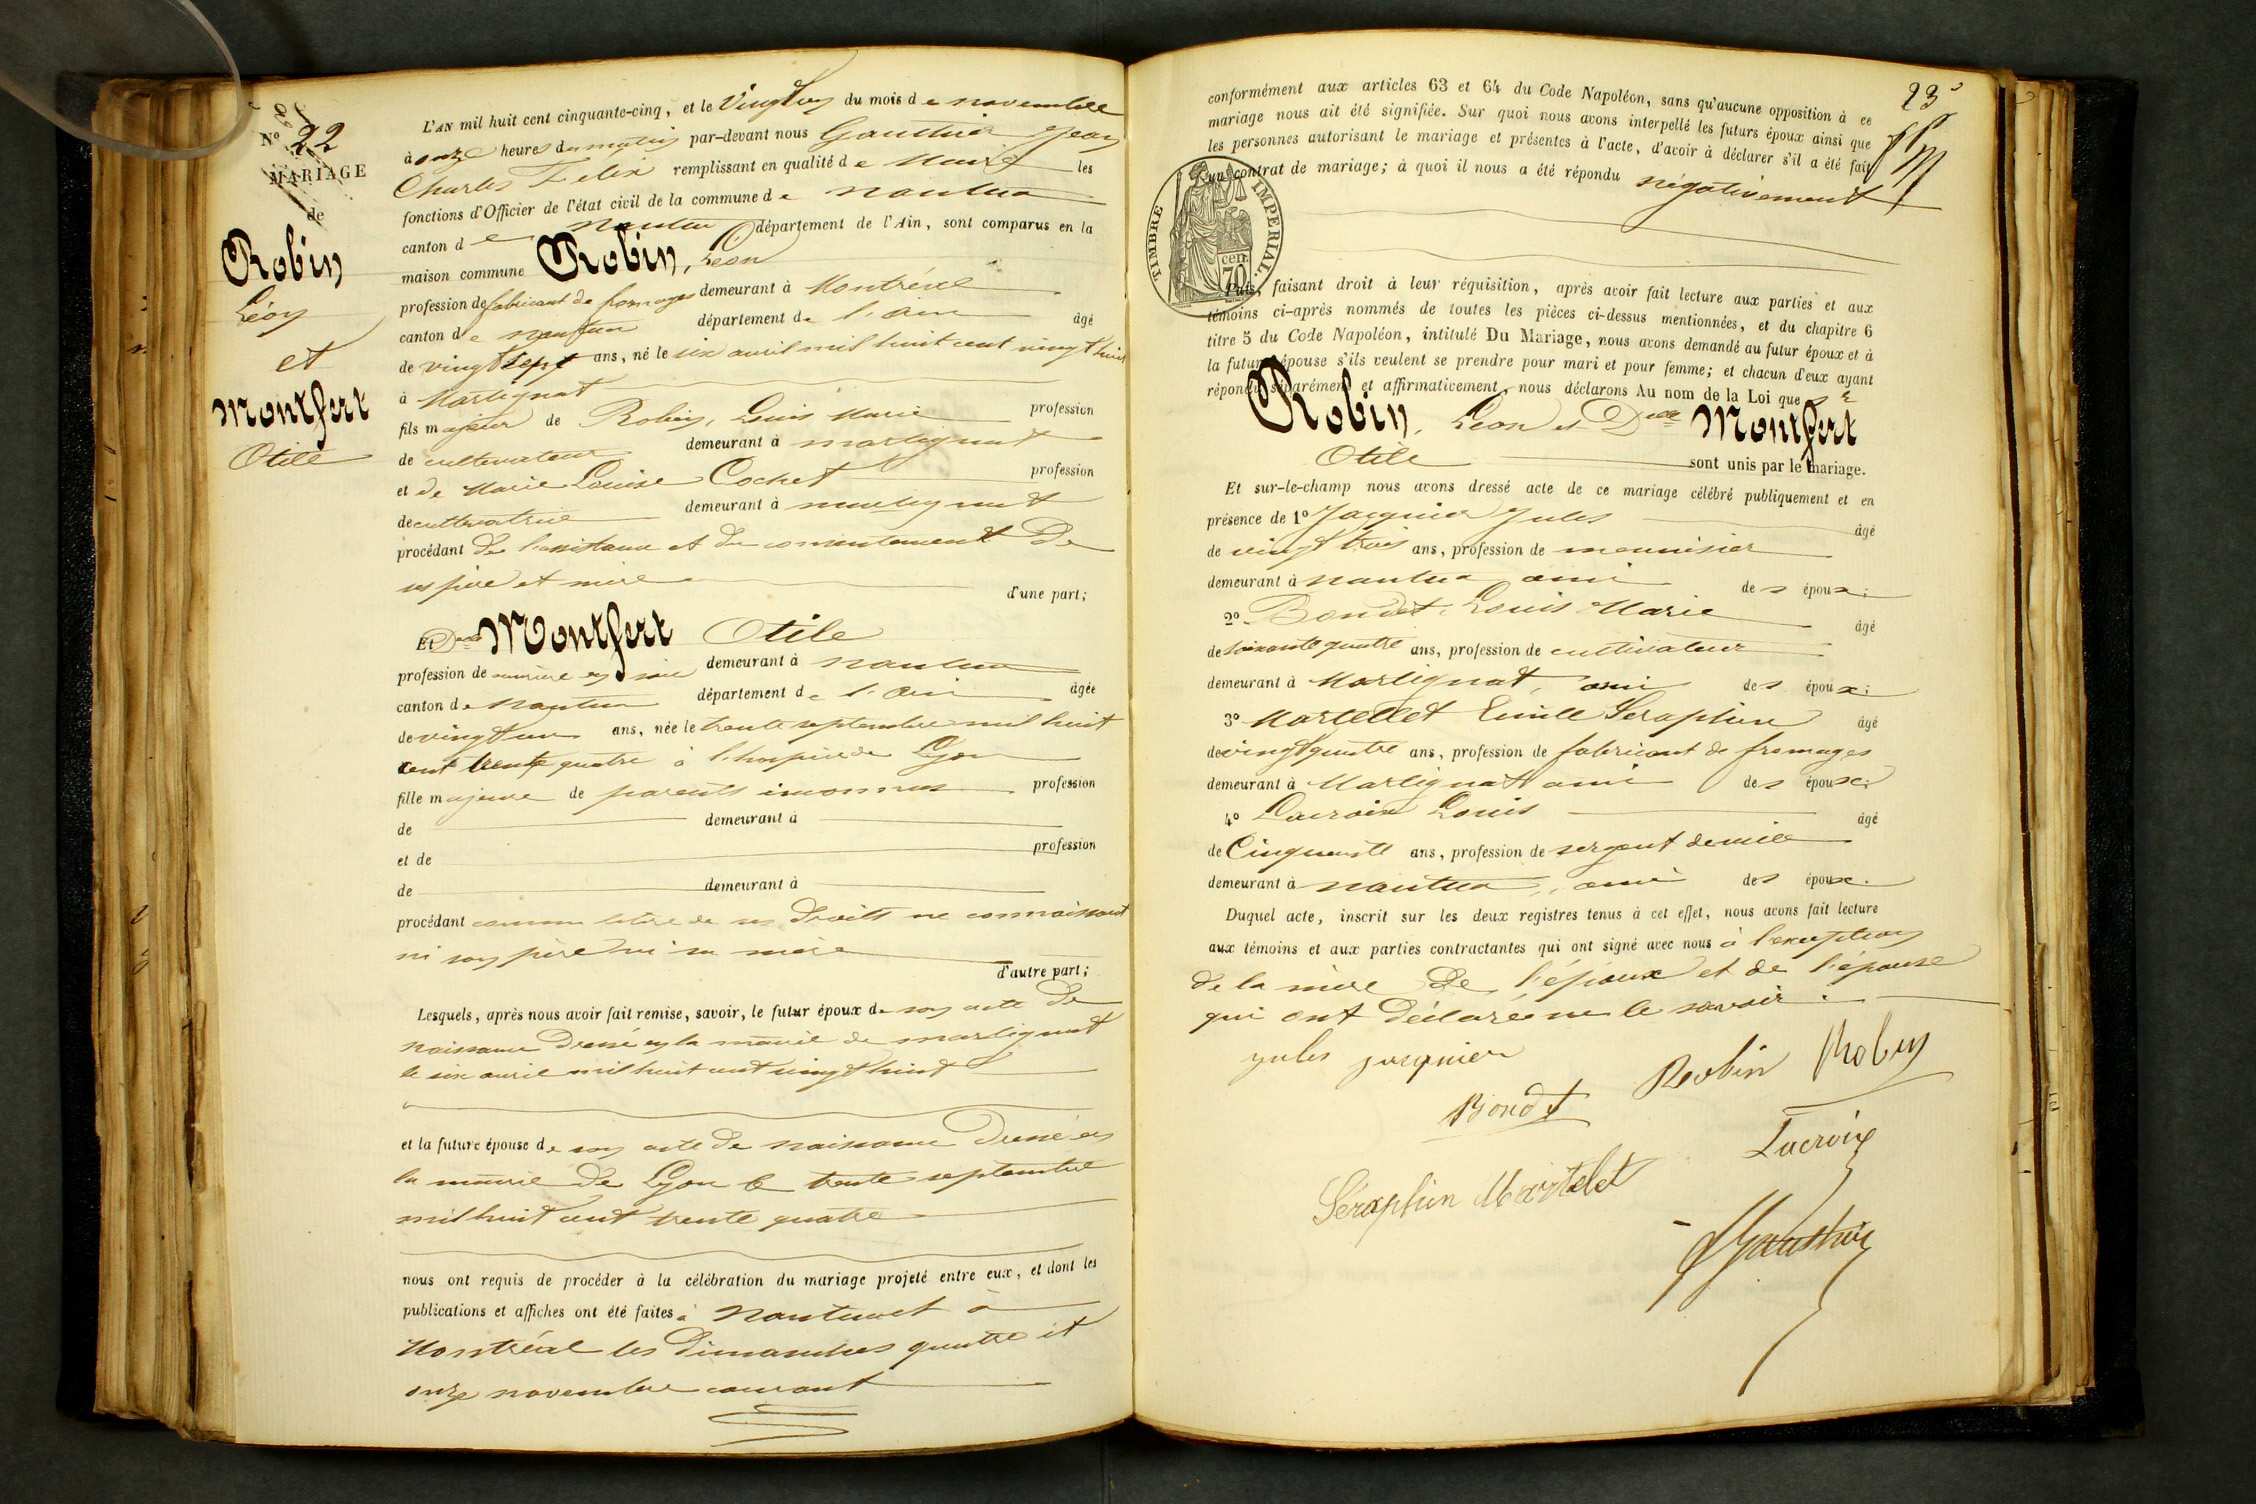 N° 22
MARIAGE
de
Robin
Léon
et
Montfert
Otile
L'AN mil huit cent cinquante-cinq, et le Vingt un du mois de novembre
à onze heures du matin par-devant nous Gauthier Jean
Charles Felix remplissant en qualité de Maire les
fonctions d'Officier de l'état civil de la commune de nantua
canton de Nantua département de l'Ain, sont comparus en la
maison commune Robin, Léon
profession de fabricant de fromages demeurant à Montréal
canton de nantua département de l'ain âgé
de vingt sept ans, né le six avril mil huit cent vingt huit
à Martignat
fils majeur de Robin, Louis Marie profession
de cultivateur demeurant à martignat
et de Marie Louise Cochet profession
de cultivatrice demeurant à martignat
procédant de l'assistance et du consentement de
ses père et mère d'une part;
Et Delle Montfert Otile
profession de ouvrière en soie demeurant à nantua
canton de Nantua département de l'ain âgée
de vingt un ans, née le trente septembre mil huit
cent trente quatre à l'hospice de Lyon
fille majeure de parents inconnus profession
de demeurant à
et de profession
de demeurant à
procédant comme libre de ses droits ne connaissant
ni son père ni sa mère
d'autre part;
Lesquels, après nous avoir fait remise, savoir, le futur époux de son acte de
naissance dressé en la mairie de martignat
le six avril mil huit cent vingt huit
et la future épouse de son acte de naissance dressé en
la mairie de Lyon le trente septembre
mil huit cent trente quatre
nous ont requis de procéder à la célébration du mariage projeté entre eux, et dont les
publications et affiches ont été faites à Nantua et à
Montréal les dimanches quatre et
onze novembre courant
23
conformément aux articles 63 et 64 du Code Napoléon, sans qu'aucune opposition à ce
mariage nous ait été signifiée. Sur quoi nous avons interpellé les futurs époux ainsi que
les personnes autorisant le mariage et présentes à l'acte, d'avoir à déclarer s'il a été fait
un contrat de mariage; à quoi il nous a été répondu négativement
TIMBRE IMPERIAL.
cen.
70
Puis, faisant droit à leur réquisition, après avoir fait lecture aux parties et aux
témoins ci-après nommés de toutes les pièces ci-dessus mentionnées, et du chapitre 6
titre 5 du Code Napoléon, intitulé Du Mariage, nous avons demandé au futur époux et à
la future épouse s'ils veulent se prendre pour mari et pour femme; et chacun d'eux ayant
répondu séparément et affirmativement, nous déclarons Au nom de la Loi que sr
Robin, Léon et Delle Montfert
Otile sont unis par le mariage.
Et sur-le-champ nous avons dressé acte de ce mariage célébré publiquement et en
présence de 1° Jacquier Jules âgé
de vingt trois ans, profession de menuisier
demeurant à nantua ami des époux;
2° Bondet, Louis Marie âgé
de soixante quatre ans, profession de cultivateur
demeurant à Martignat, ami des époux;
3° Martelet Emile Séraphin âgé
de vingt quatre ans, profession de fabricant de fromages
demeurant à Martignat ami des époux;
4° Lacroix Louis âgé
de Cinquante ans, profession de sergent de ville
demeurant à nantua, ami des époux.
Duquel acte, inscrit sur les deux registres tenus à cet effet, nous avons fait lecture
aux témoins et aux parties contractantes qui ont signé avec nous à l'exception
de la mère de l'époux et de l'épouse
qui ont déclaré ne le savoir.
jules jacquier
Robin Robin
Bondet
Lacroix
Séraphin Martelet
Gauthier